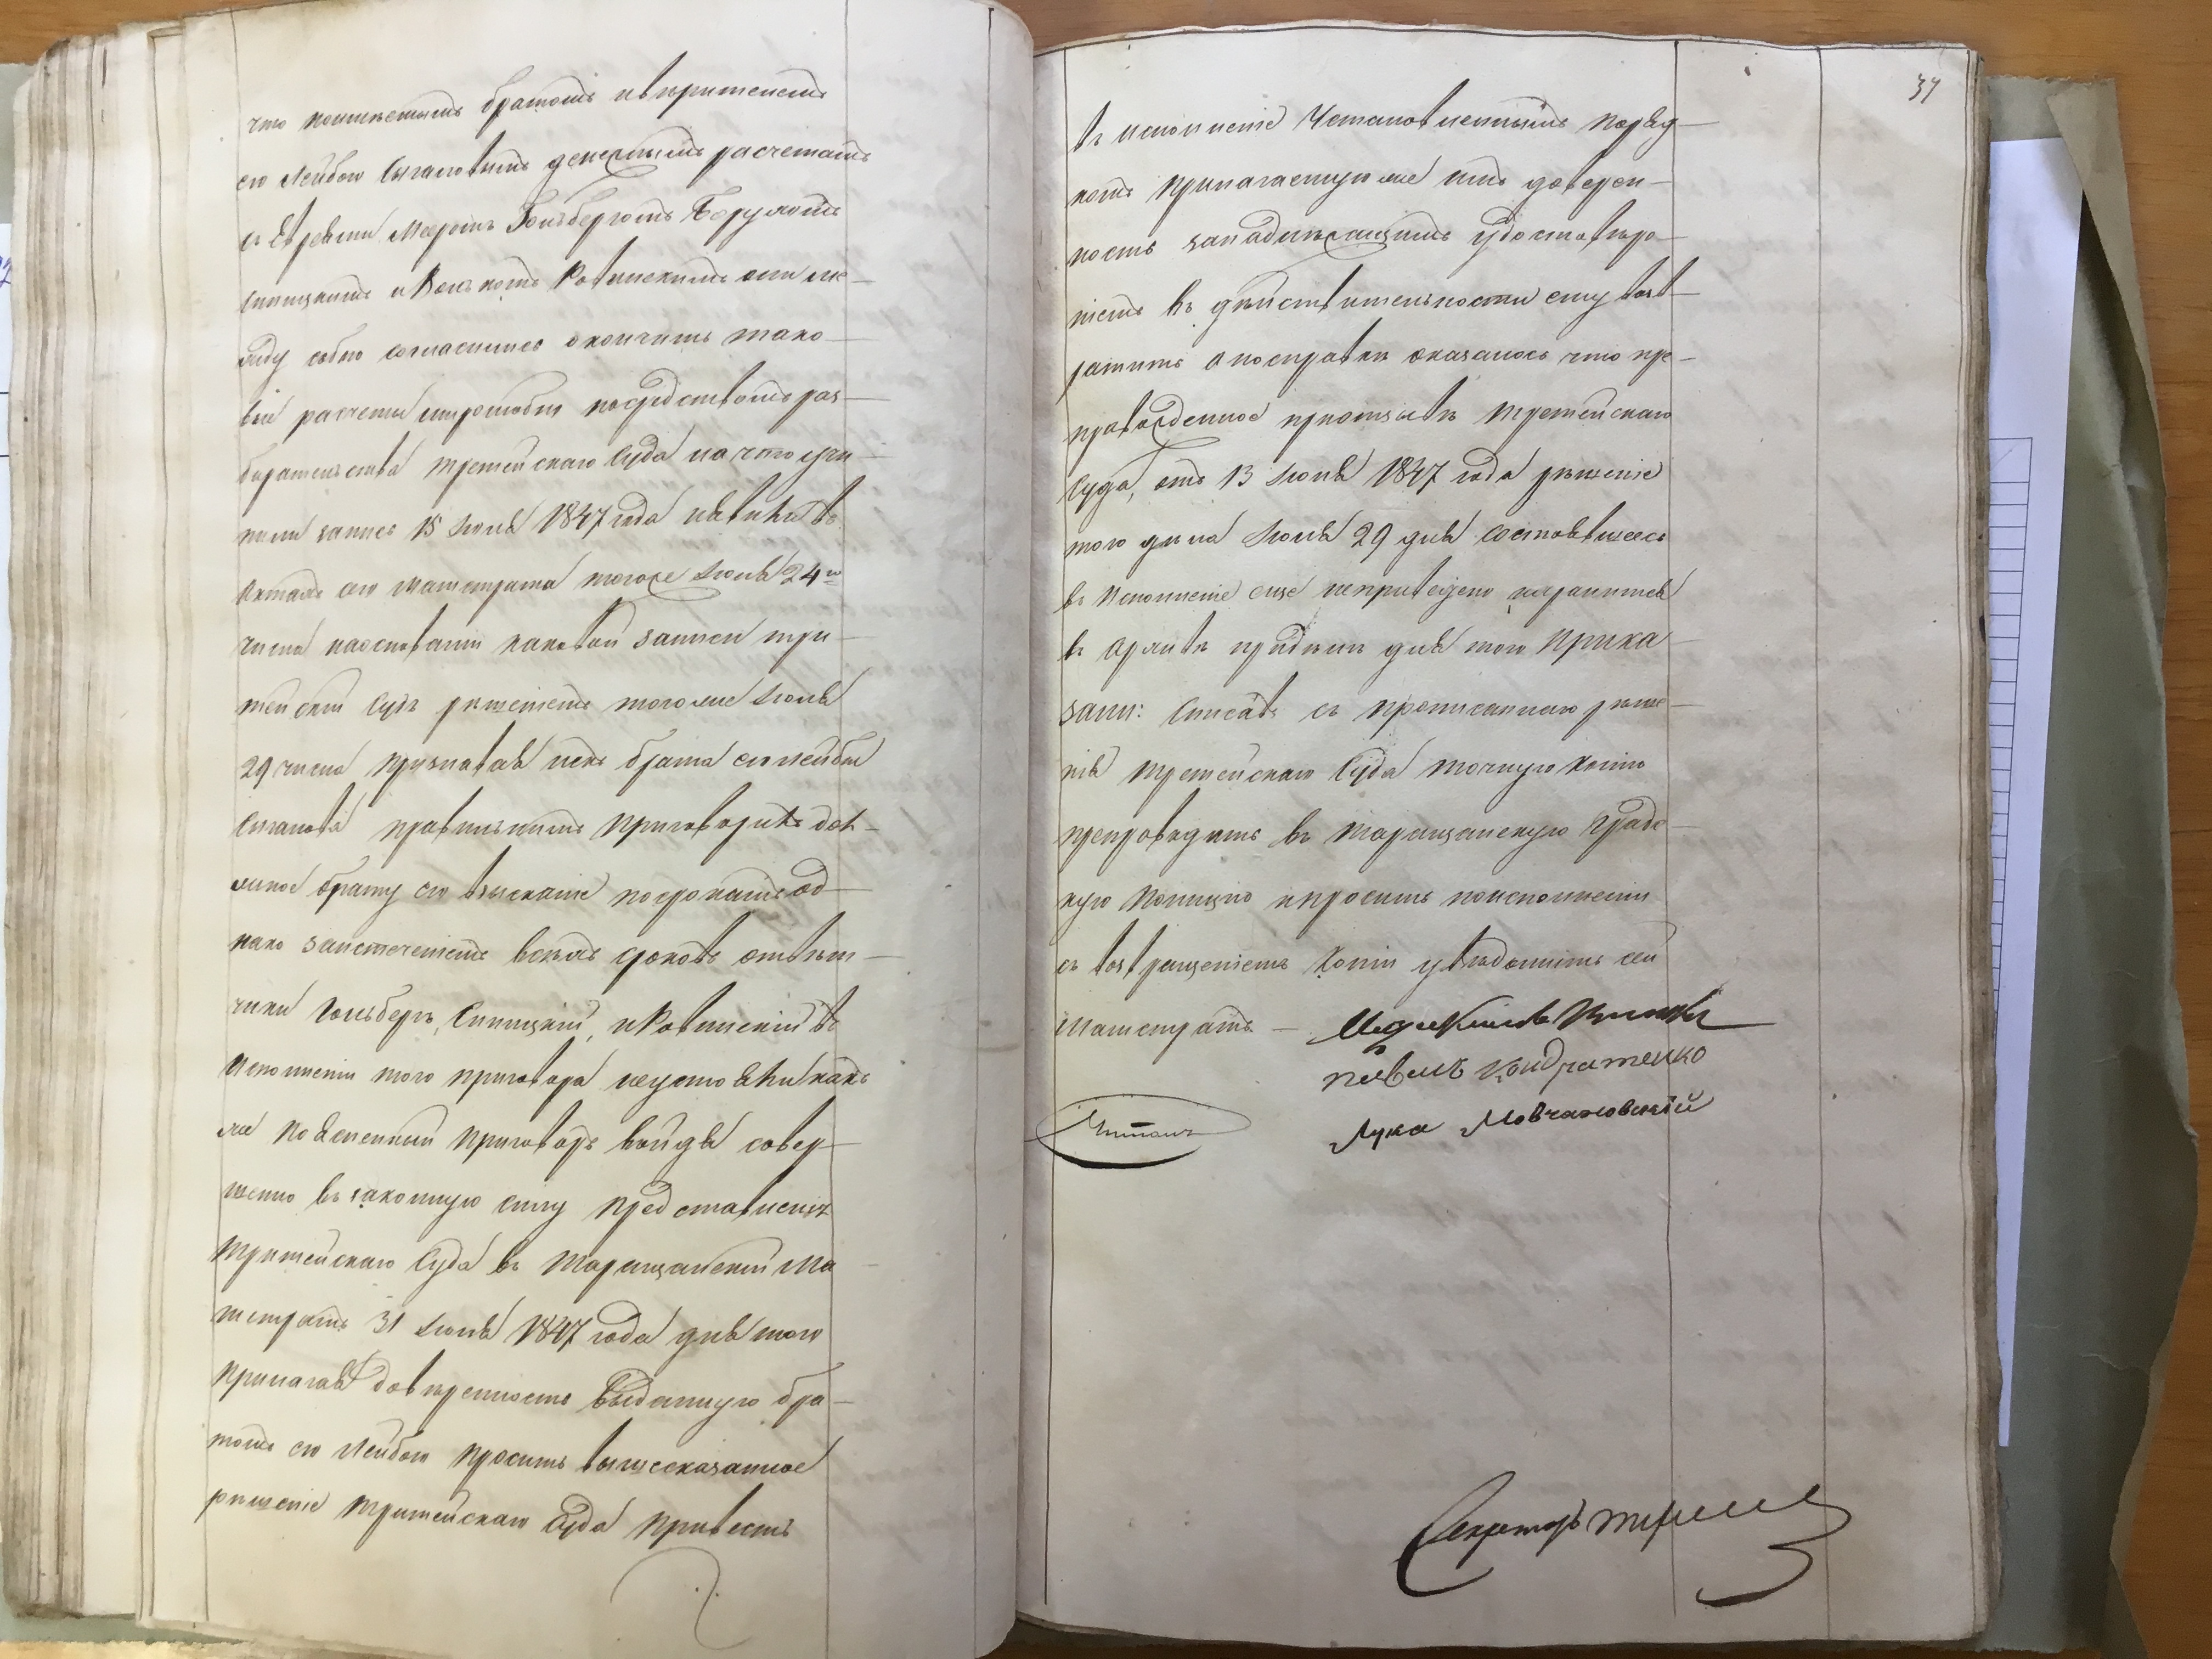 что поимѣемымъ братомъ ивкрителемъ
его Лейбою Сигаловымъ денежнымъ расчетамъ
съ Евреями Меэромъ Гольбергомъ Борухомъ
Синицкимъ и Волькомъ Ровинскимъ они ме-
жду собою согласились окончить тако-
вые расчеты миролюбно посредствомъ раз-
бирательства третейскаго Суда на что учи-
нили запись 15 Іюля 1847 года и явили въ
Актахъ сего Магистрата тогоже Іюля 24го
числа наоснованіи каковой записи тре-
тейскій Судъ рѣшеніемъ тогоже Іюля
29 числа признавая искъ брата его Лейбы
Сигалова правильнымъ приговорилъ дол-
жное брату его взысканіе посрокамъ од-
нако заистеченіемъ всѣхъ сроковъ отвѣт-
чики Гольберъ, Синицкій, и Ровинскій въ
исполненіи того приговора неустояли какъ
же поясненный приговоръ войдя совер-
шенно въ законную силу представленъ
третейскаго Суда въ Таращанскій Ма-
гистратъ 31 Іюля 1847 года для того
прилагая довѣренность выданную бра-
томъ его Лейбою проситъ вышесказанное
рѣшеніе третейскаго Суда привесть
37
въ исполненіе установленнымъ поряд-
комъ прилагаемую же имъ доверен-
ность занадлежащимъ удостовѣре-
ніемъ въ дѣйствительности ему возв-
ратить а посправкѣ оказалось что пре-
провожденное приотзывѣ третейскаго
Суда, отъ 13 Іюля 1847 года рѣшеніе
того дѣла Іюля 29 дня состоявшееся
въ исполненіе еще неприведено и хранится
въ Архивѣ придѣлѣ для того Прика-
зали: Списавъ съ прописаннаго рѣше-
нія третейскаго Суда точную копію
препроводить въ Таращанскую Градс-
кую Полицію и просить поисполненіи
съ возвращеніемъ копіи увѣдомить сей
Магистратъ —
Павелъ Кондратенко
Лука Мовчановскій
Читалъ
Секретарь